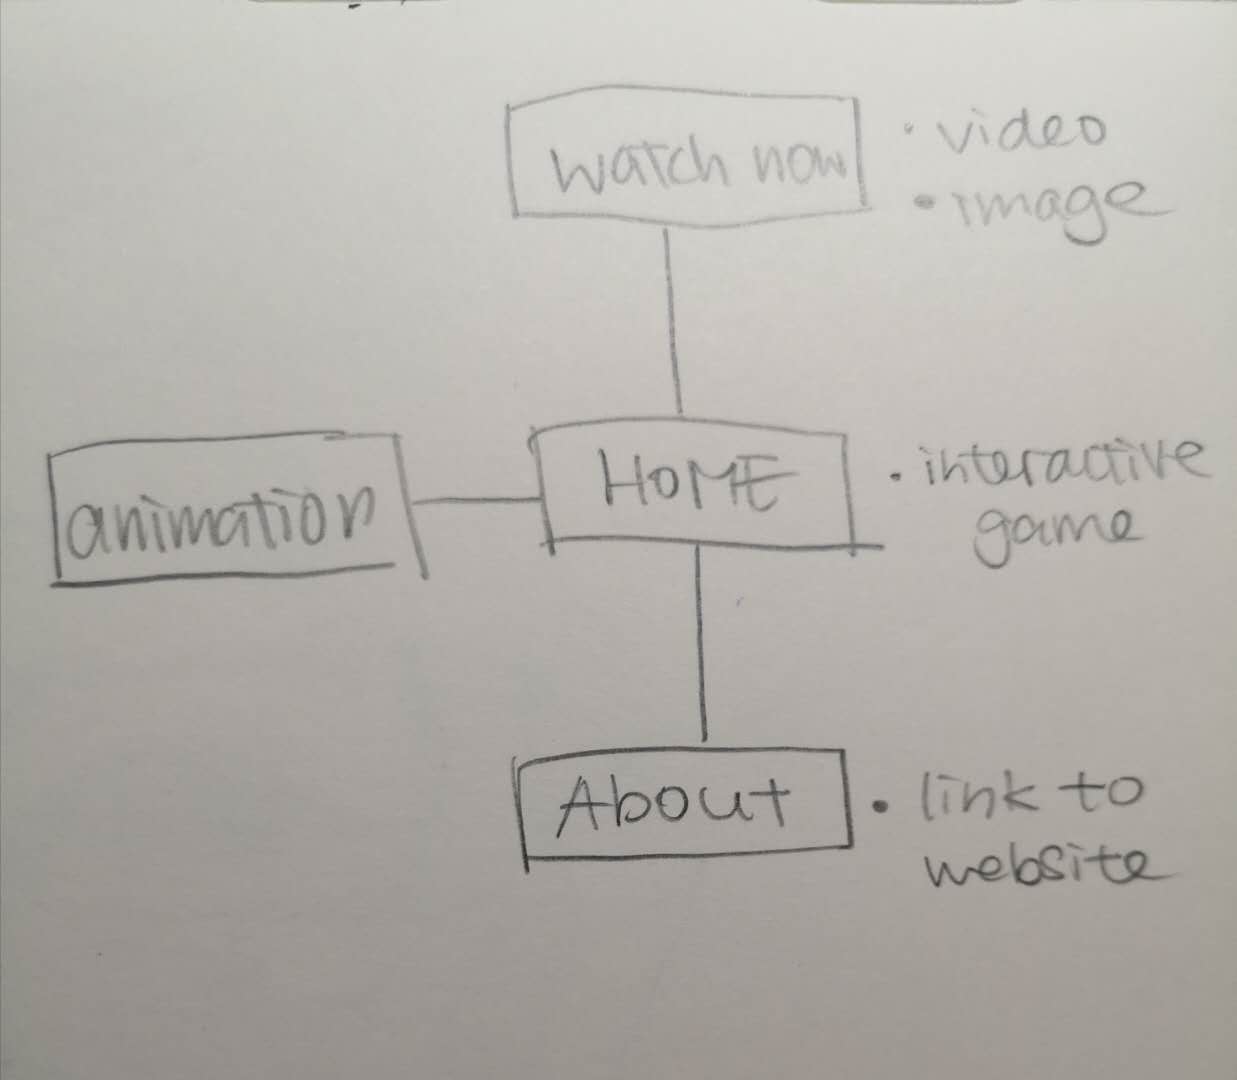 watch now
• video
• image
animation
HOME
• interactive
game
About
• link to
website